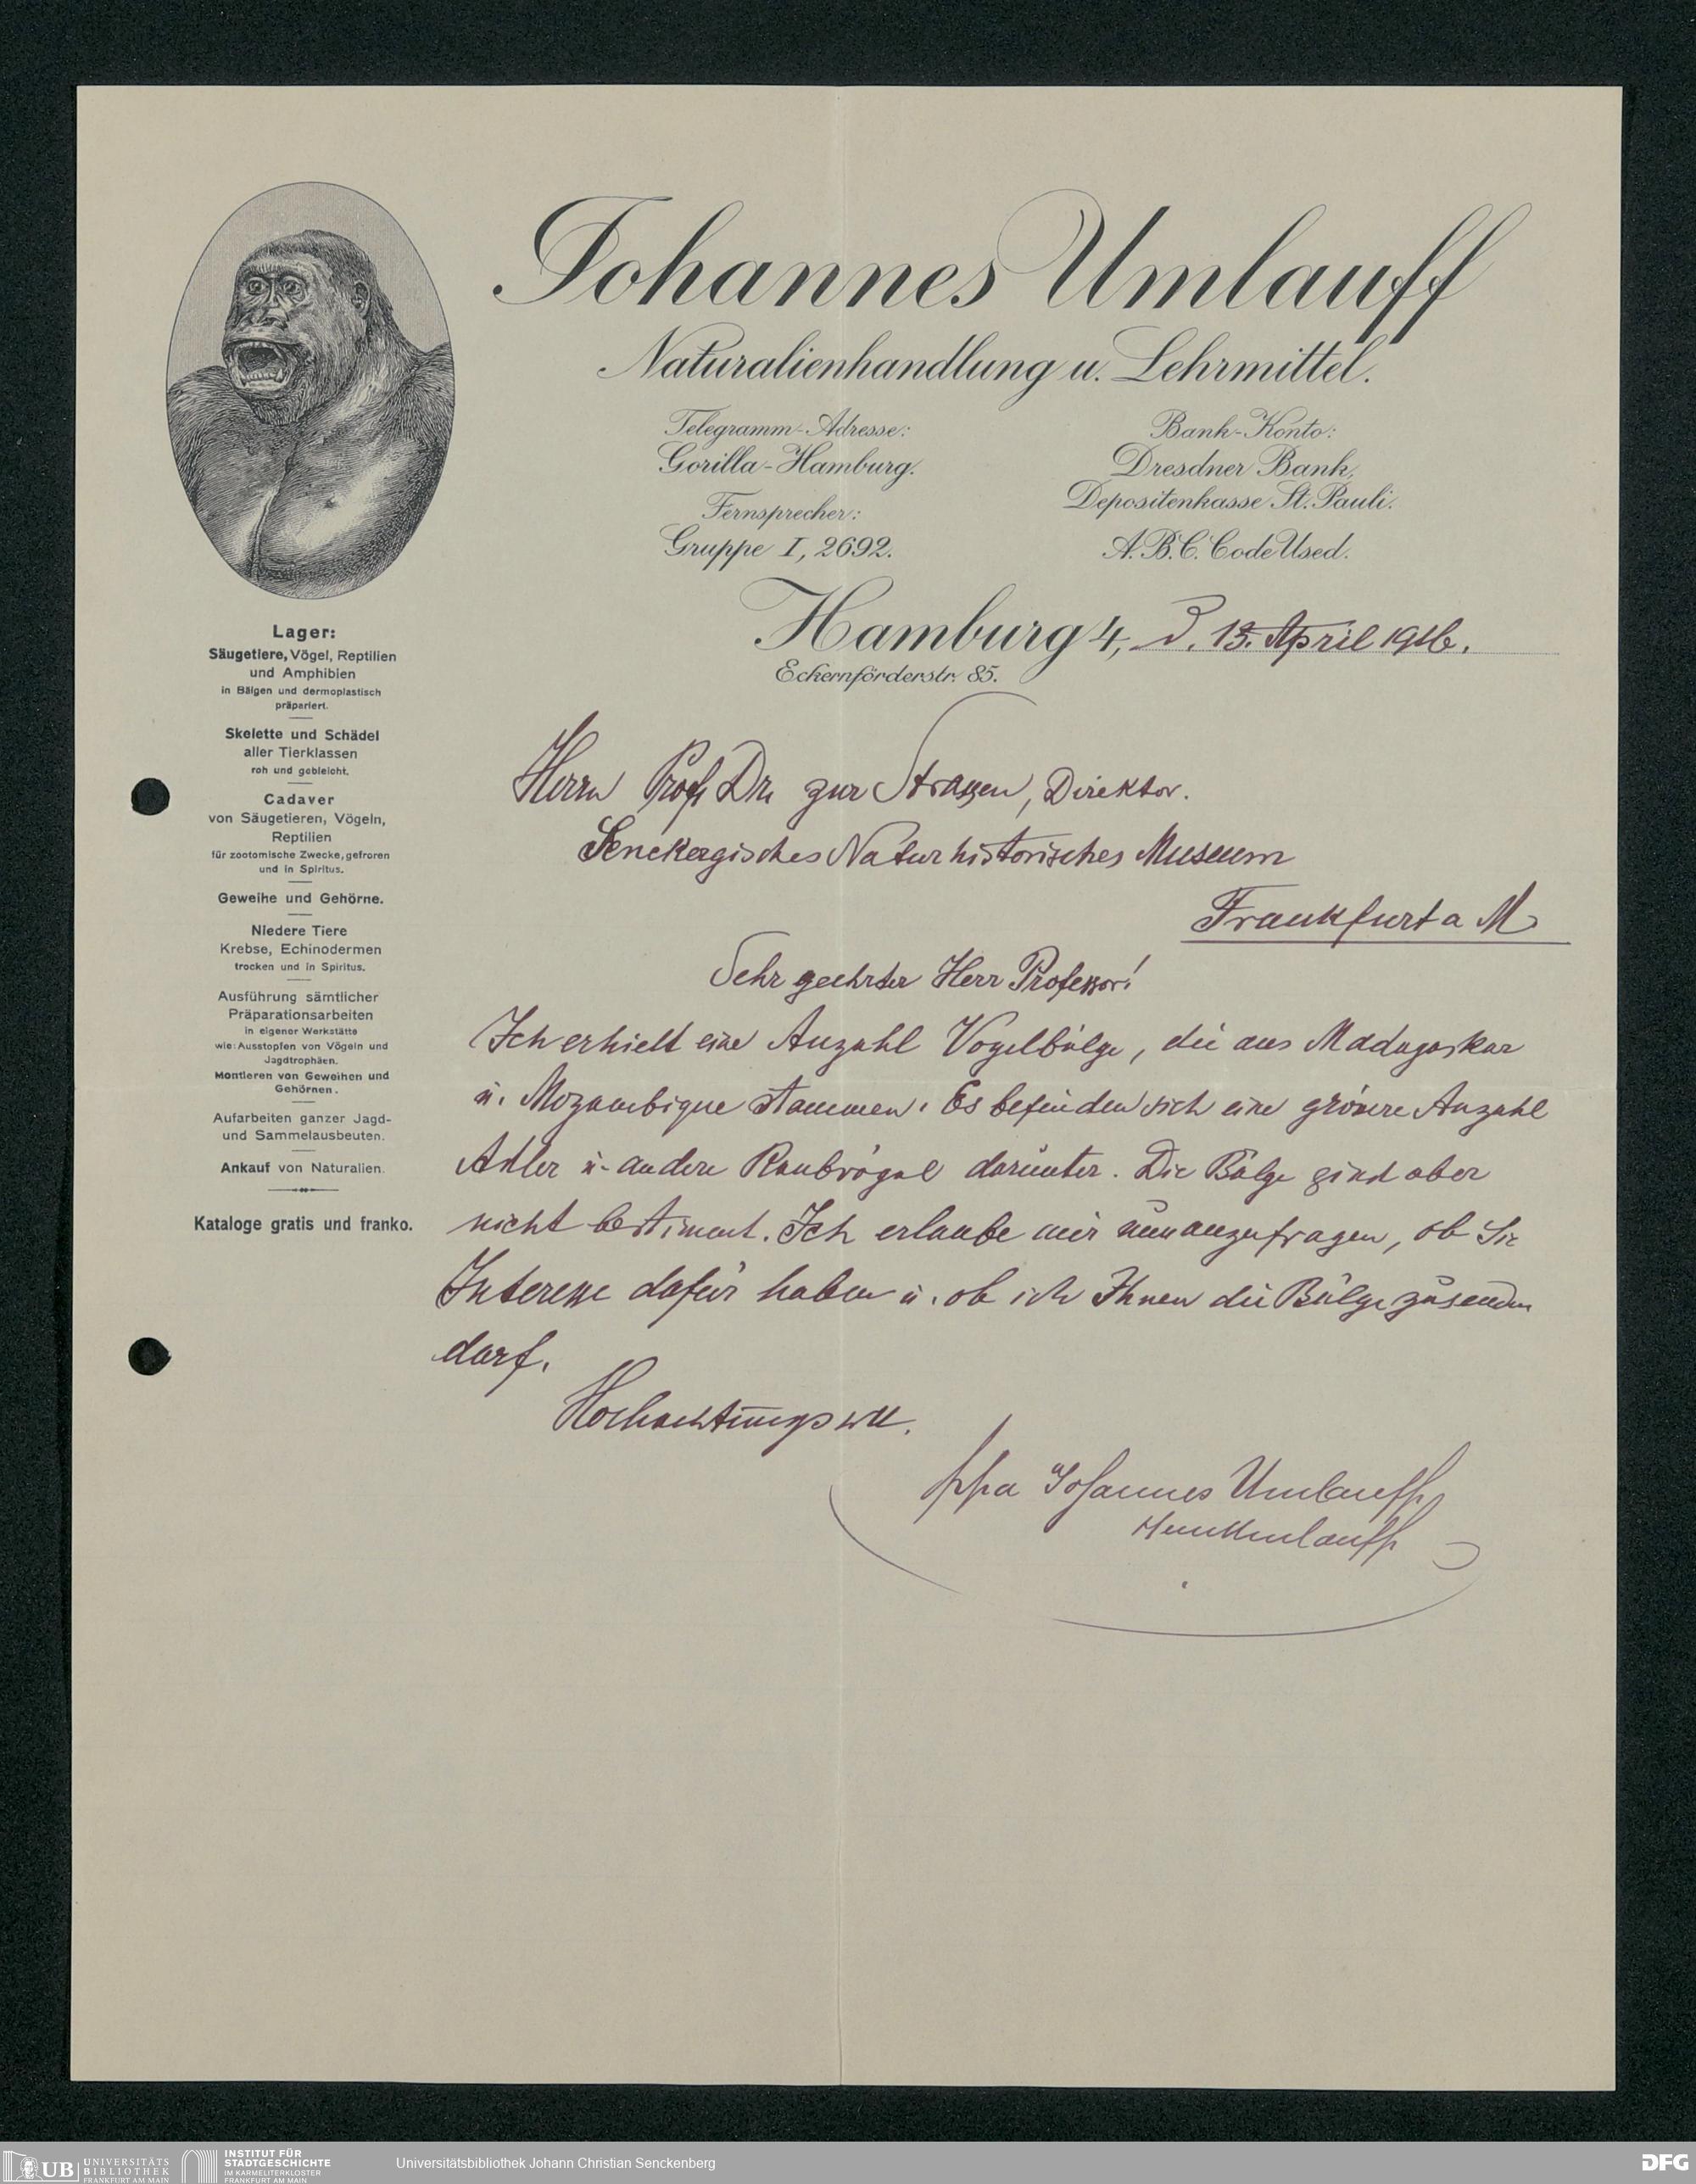 Johannes Umlauff
Naturalienhandlung u. Lehrmittel.
Telegramm-Adresse:
Gorilla-Hamburg.
Fernsprecher:
Gruppe I, 2692.
Bank-Konto:
Dresdner Bank,
Depositenkasse St. Pauli.
A.B.C. Code Used.
Hamburg 4, d. 13. April 1916.
Eckernförderstr. 85.
Lager:
Säugetiere, Vögel, Reptilien
und Amphibien
in Bälgen und dermoplastisch
präpariert.
Skelette und Schädel
aller Tierklassen
roh und gebleicht.
Cadaver
von Säugetieren, Vögeln,
Reptilien
für zootomische Zwecke, gefroren
und in Spiritus.
Geweihe und Gehörne.
Niedere Tiere
Krebse, Echinodermen
trocken und in Spiritus.
Ausführung sämtlicher
Präparationsarbeiten
in eigener Werkstätte
wie: Ausstopfen von Vögeln und
Jagdtrophäen.
Montieren von Geweihen und
Gehörnen.
Aufarbeiten ganzer Jagd-
und Sammelausbeuten.
Ankauf von Naturalien.
Kataloge gratis und franko.
Herrn Prof. Dr. zur Strassen, Direktor.
Senckergisches Naturhistorisches Museum
Frankfurt a M
Sehr geehrter Herr Professor!
Ich erhielt eine Anzahl Vogelbälge, die aus Madagaskar
u. Mozambique stammen. Es befinden sich eine grössere Anzahl
Adler u. andere Raubvögel darunter. Die Bälge sind aber
nicht bestimmt. Ich erlaube mir nun anzufragen, ob Sie
Interesse dafür haben u. ob ich Ihnen die Bälge zusenden
darf.
Hochachtungsvoll.
ppa Johannes Umlauff
Umlauff
UB UNIVERSITÄTS
BIBLIOTHEK
FRANKFURT AM MAIN
INSTITUT FÜR
STADTGESCHICHTE
IM KARMELITERKLOSTER
FRANKFURT AM MAIN
Universitätsbibliothek Johann Christian Senckenberg
DFG